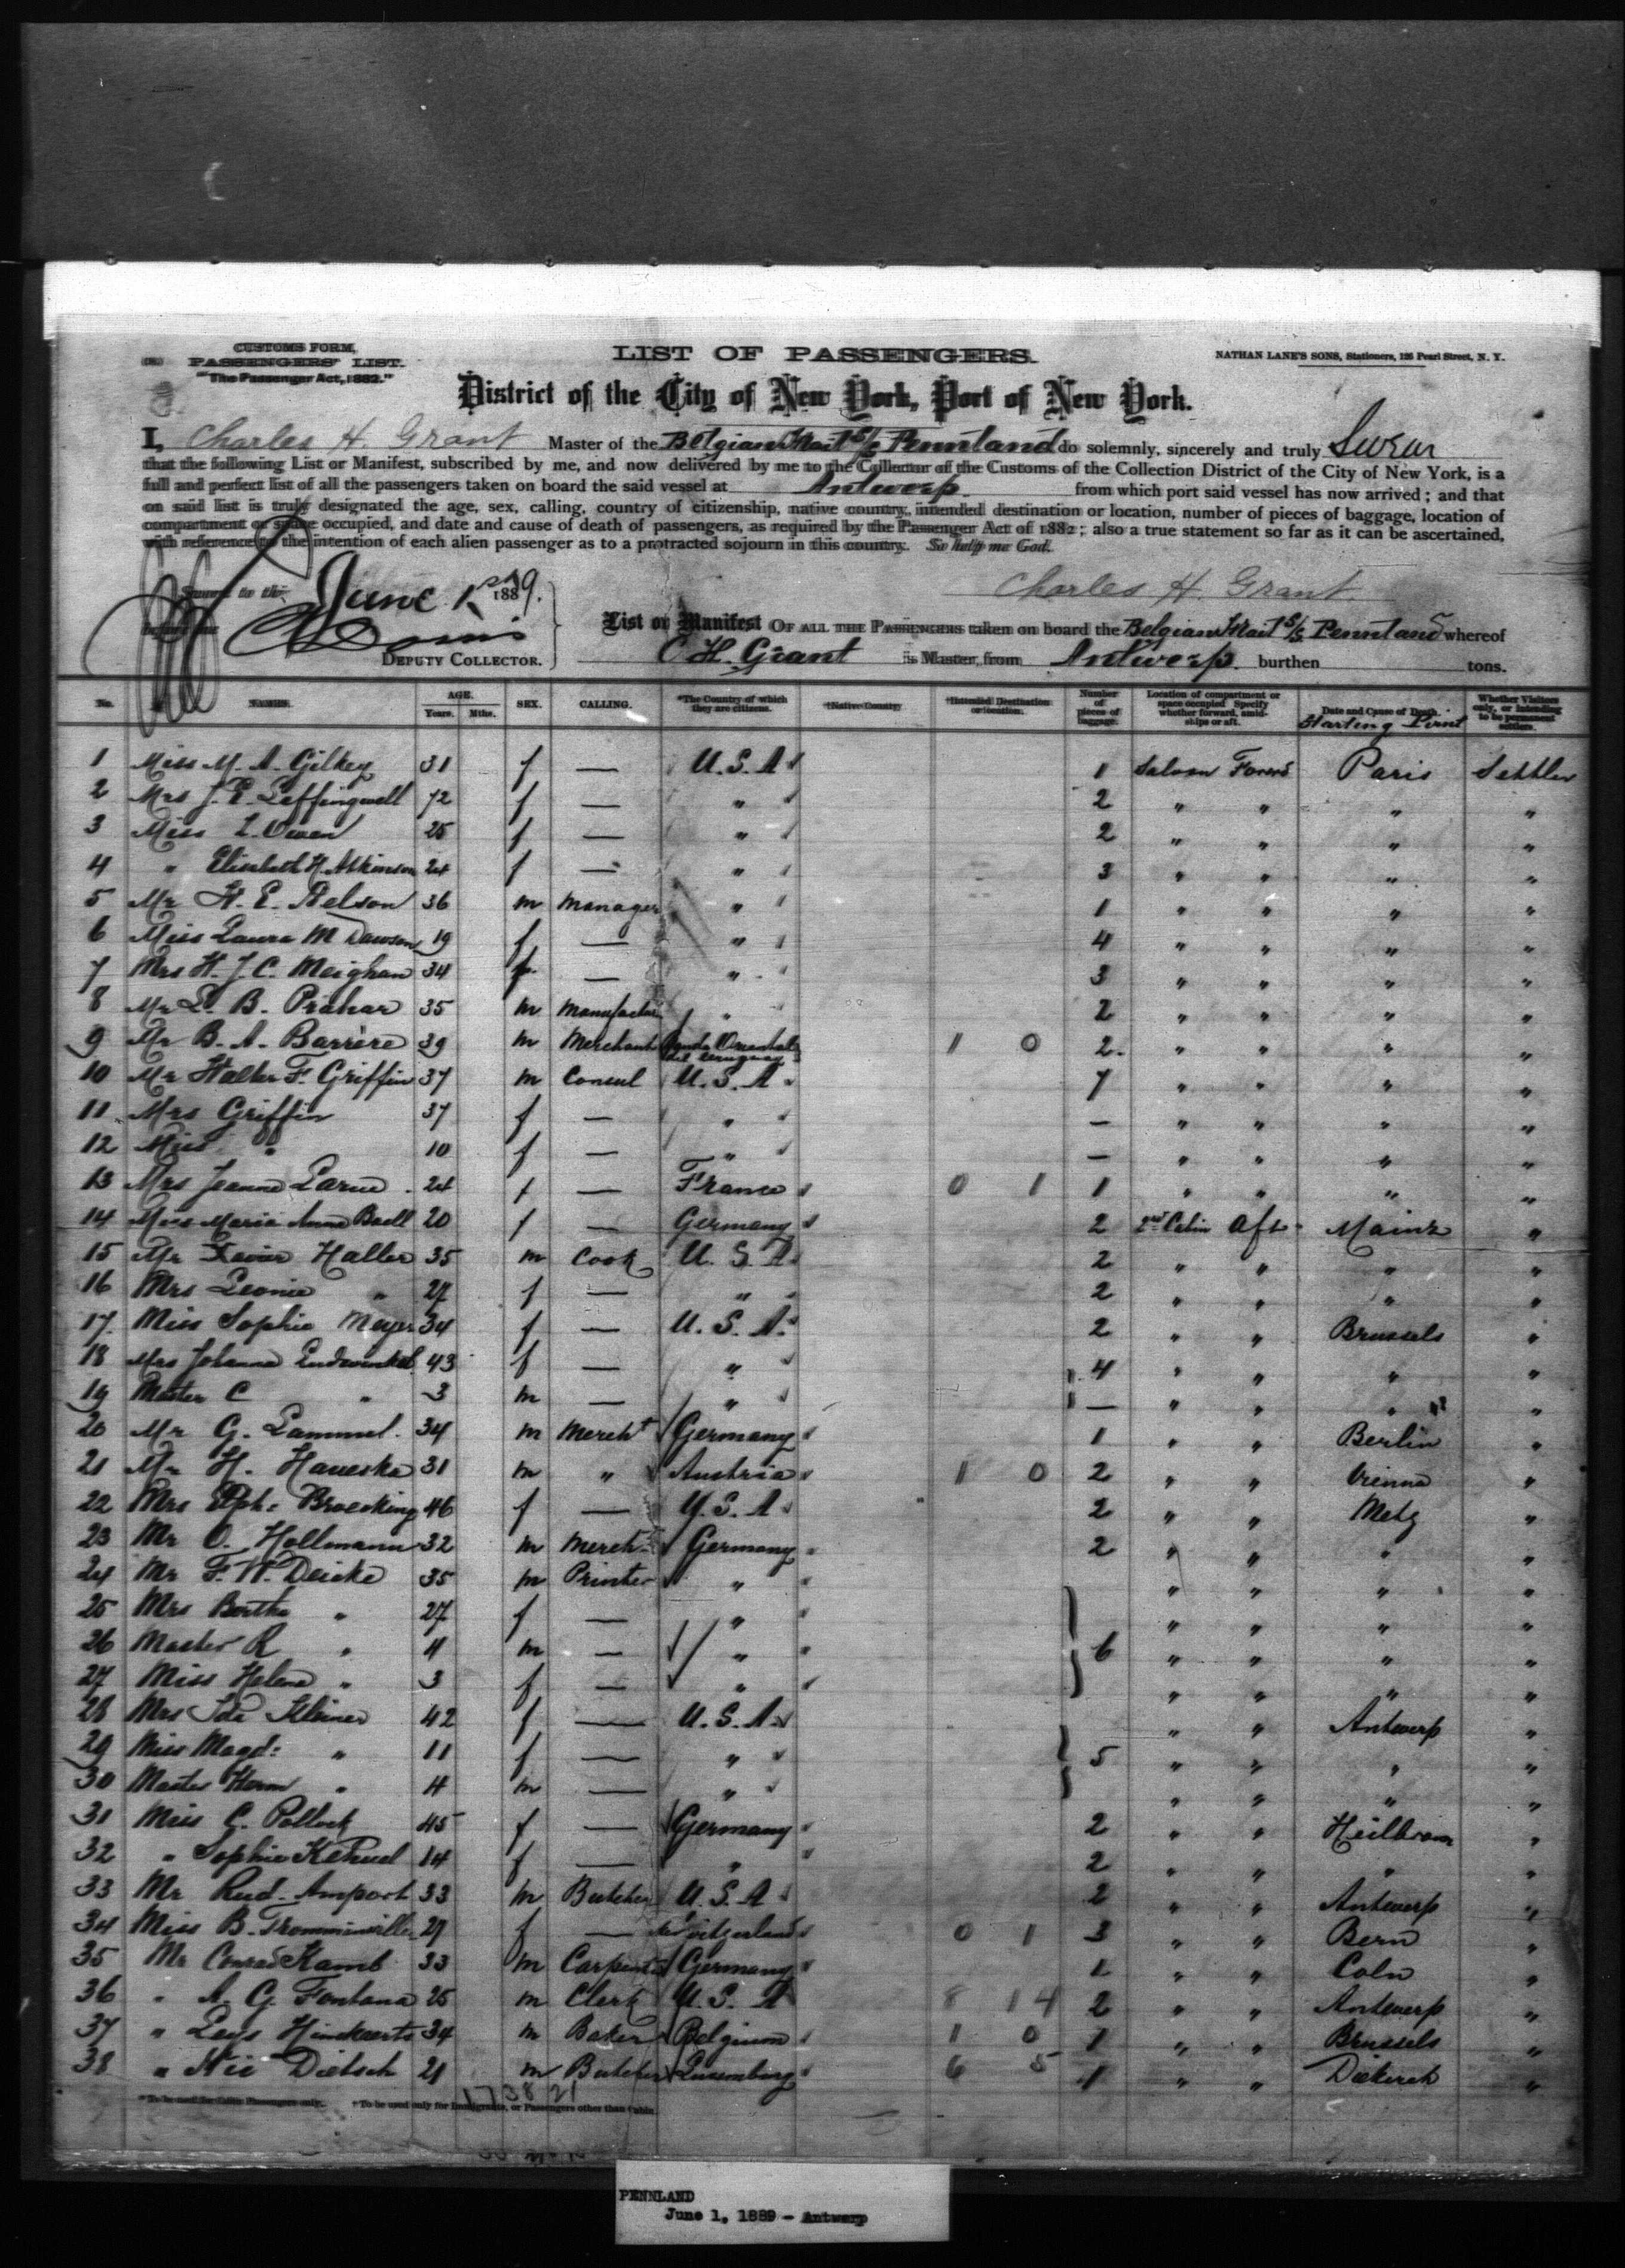 CUSTOMS FORM,
PASSENGERS' LIST.
"The Passenger Act, 1882."
LIST OF PASSENGERS.
NATHAN LANE'S SONS, Stationers, 126 Pearl Street, N. Y.
District of the City of New York, Port of New York.
I, Charles H. Grant Master of the Belgian Mail S/S Pennland do solemnly, sincerely and truly Swear
that the following List or Manifest, subscribed by me, and now delivered by me to the Collector of the Customs of the Collection District of the City of New York, is a
full and perfect list of all the passengers taken on board the said vessel at Antwerp from which port said vessel has now arrived; and that
on said list is truly designated the age, sex, calling, country of citizenship, native country, intended destination or location, number of pieces of baggage, location of
compartment or space occupied, and date and cause of death of passengers, as required by the Passenger Act of 1882; also a true statement so far as it can be ascertained,
with reference to the intention of each alien passenger as to a protracted sojourn in this country. So help me God.
Sworn to this June 1st 1889.
Charles H. Grant
List or Manifest OF ALL THE PASSENGERS taken on board the Belgian Mail S/S Pennland whereof
DEPUTY COLLECTOR.
C H. Grant is Master, from Antwerp. burthen tons.
No. NAMES. AGE. Years. Mths. SEX. CALLING. *The Country of which they are citizens. †Native Country *Intended Destination or location. Number of pieces of baggage. Location of compartment or space occupied Specify whether forward, amidships or aft. Date and Cause of Death. Starting Point Whether Visitors only, or intending to be permanent settlers.
1 Miss M. A. Gilkey 31 f — U.S.A 1 Saloon Forwd Paris Settler
2 Mrs J. E. Leffingwell 72 f — " 2 " " " "
3 Miss L. Owen 25 f — " 2 " " " "
4 " Elisabeth H. Atkinson 24 f — " 3 " " " "
5 Mr H. E. Nelson 36 m Manager " 1 " " " "
6 Miss Laura M Dawson 19 f — " 4 " " " "
7 Mrs H. J. C. Meighan 34 f — " 3 " " " "
8 Mr L. B. Prahar 35 m Manufactur " 2 " " " "
9 Mr B. A. Barrère 39 m Merchant Banda Oriental del Uruguay 1 0 2 " " " "
10 Mr Walter F. Griffin 37 m Consul U.S.A 7 " " " "
11 Mrs Griffin 37 f — " — " " " "
12 Miss " 10 f — " — " " " "
13 Mrs Jeanne Larue 24 f — France 0 1 1 " " " "
14 Miss Maria Anna Baell 20 f — Germany 2 2nd Cabin Aft Mainz "
15 Mr Xavier Haller 35 m Cook U.S.A. 2 " " " "
16 Mrs Leonie " 27 f — " 2 " " " "
17. Miss Sophie Meyer 34 f — U.S.A. 2 " " Brussels "
18 Mrs Johanna 43 f — " 4 " " " "
19 Master C " 3 m — " — " " " "
20 Mr G. Lammel 34 m Mercht Germany 1 " " Berlin "
21 Mr H. Haueska 31 m " Austria 1 0 2 " " Vienna "
22 Mrs Broecking 46 f — U.S.A 2 " " Metz "
23 Mr O. Hollmann 32 m Mercht Germany 2 " " " "
24 Mr F. W. Deicke 35 m Printer " " " " "
25 Mrs Bertha " 27 f — " " " " "
26 Master R " 4 m — " 6 " " " "
27 Miss Helena " 3 f — " " " " "
28 Mrs Ida Kleiner 42 f — U.S.A. " " Antwerp "
29 Miss Magd: " 11 f — " 5 " " " "
30 Master Herm " 4 m — " " " " "
31 Miss C. Pollock 45 f — Germany 2 " " Heilbronn "
32 " Sophie 14 f — " 2 " " " "
33 Mr Rud. Amport 33 m Butcher U.S.A 2 " " Antwerp "
34 Miss B. 29 f — Switzerland 0 1 3 " " Bern "
35 Mr Conrad Kamb 33 m Carpenter Germany 1 " " Coln "
36 " A. G. Fontana 25 m Clerk U.S. A 8 14 2 " " Antwerp "
37 " Leys 34 m Baker Belgium 1 0 1 " " Brussels "
38 " Nic Dietsch 21 m Butcher Luxemburg 6 5 1 " " Diekirch "
1738 21
*To be used for Cabin Passengers only. †To be used only for Immigrants, or Passengers other than Cabin.
PENNLAND
June 1, 1889 - Antwerp